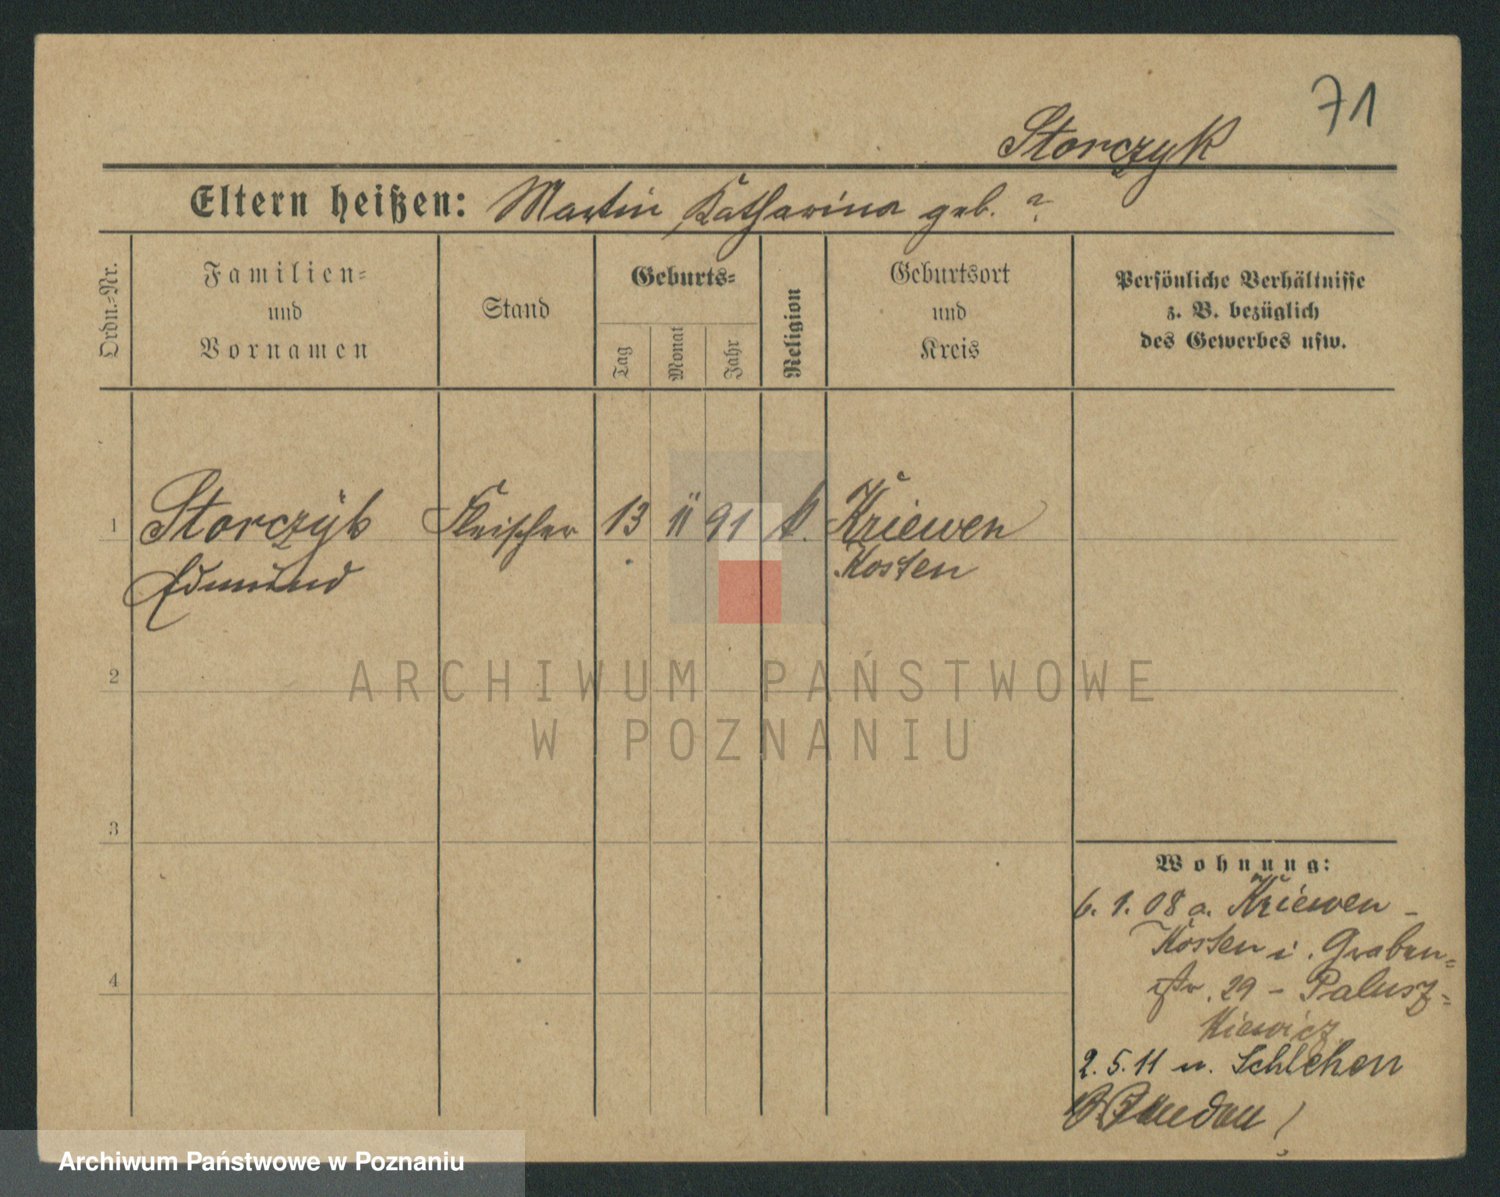 71
Storczyk
Eltern heißen: Martin Katharina geb. ?
Ordn.=Nr.
Familien=
und
Vornamen
Stand
Geburts=
Tag
Monat
Jahr
Religion
Geburtsort
und
Kreis
Persönliche Verhältnisse
z. B. bezüglich
des Gewerbes usw.
1 Storczyk Fleischer 13 11 91 k. Kriewen
Edmund Kosten
2
ARCHIWUM PAŃSTWOWE
W POZNANIU
3
4
Wohnung:
6. 1. 08 a. Kriewen -
Kosten i. Graben=
str. 29 - Palusz=
kiewicz
2. 5. 11 n. Schlehen
Archiwum Państwowe w Poznaniu